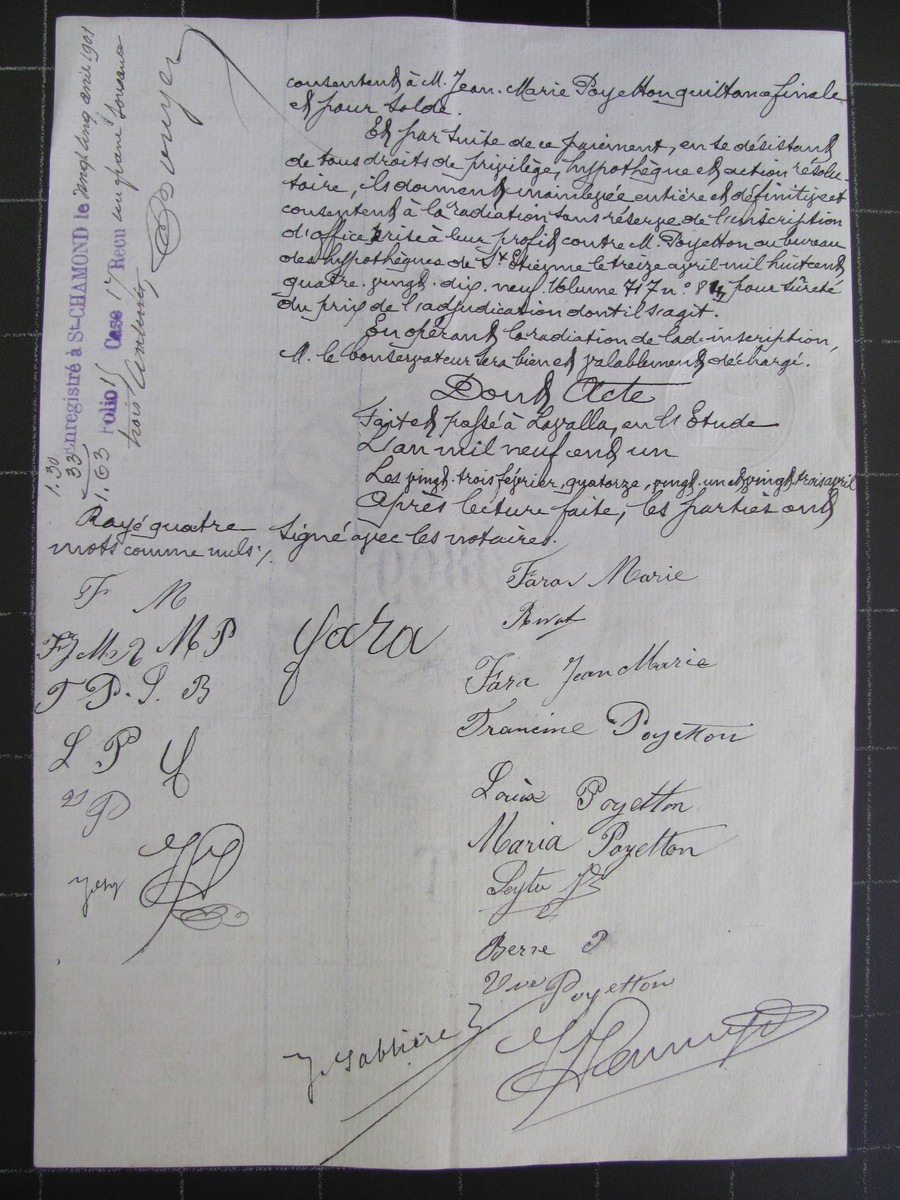 consentent à M. Jean-Marie Poyetton quittance finale
et pour solde.
Et par suite de ce paiement, en se désistant
de tous droits de privilège, hypothèque et action résolu-
toire, ils donnent mainlevée entière et définitive et
consentent à la radiation sans réserve de l'inscription
d'office prise à leur profit contre M. Poyetton au bureau
des hypothèques de St Etienne le treize avril mil huit cent
quatre-vingt-dix-neuf Volume 717 n° 84 pour sûreté
du prix de l'adjudication dont il s'agit.
En opérant la radiation de lad. inscription,
M. le Conservateur sera bien et valablement déchargé.
Dont Acte
Fait et passé à Lavalla, en l'Etude
L'an mil neuf cent un
Les vingt-trois février, quatorze, vingt-un et vingt-trois avril
Après lecture faite, les parties ont
signé avec les notaires.
Enregistré à St-CHAMOND le vingt cinq avril 1901
Folio 11 Case 17 Reçu un franc soixante
trois centimes
1.30
33
1.63
Rayé quatre
mots comme nuls
F M
F J M R M P
F P. S. B
L P
P
Fara
Fara Marie
Rivat
Fara Jean Marie
Francine Poyetton
Louise Poyetton
Maria Poyetton
Seytu
Berne P
Vve Poyetton